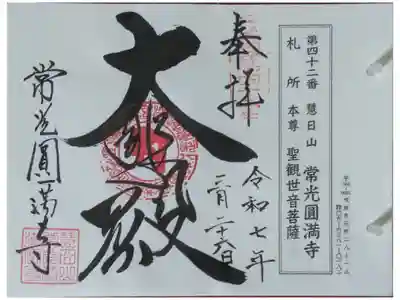 第四十二番 慧日山 常光圓満寺
札所本尊 聖観世音菩薩
奉拝
令和七年
二月二十六日
大悲殿
常光圓満寺